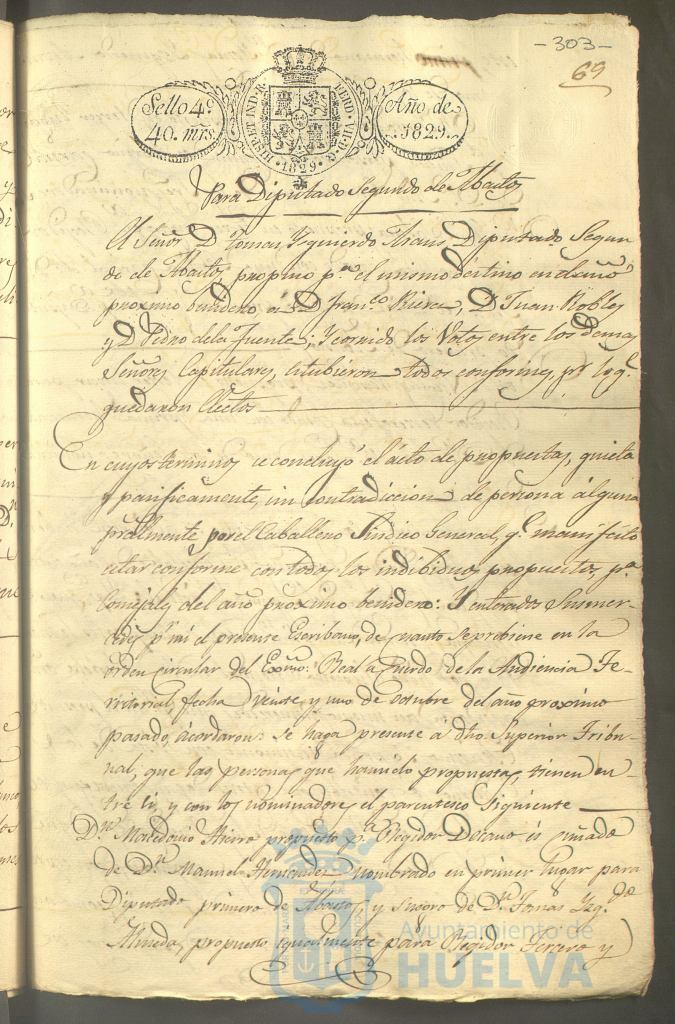 -303-
69
Sello 4º
40. mrs.
HISP. ET IND. R. FERD. VII. D. G. 1829
Año de
1829.
Para Diputado Segundo de Abastos
Al Señor D Tomas Yzquierdo Diputado Segun-
do de Abastos, propuso pª el mismo destino en el año
proximo benidero, á D Franco Rivera, D Juan Robles
y D Pedro de la Fuente; y corrido los Votos entre los demas
Señores Capitulares, estubieron todos conformes, pr lo q.e
quedaron Electos
En cuyos terminos se concluyó el acto de propuestas, quieta
y pacificamente, sin contradiccion de persona alguna
pralmente por el Caballero Sindico General, q.e manifestó
estar conforme con todos los individuos propuestos, pª
Concejales del año proximo benidero: Y enterados Susmer-
cedes pr mi el presente Escribano, de cuanto se previene en la
orden circular del Exmo. Real Acuerdo de la Audiencia Te-
rritorial, fecha veinte y uno de octubre del año proximo
pasado, acordaron: se haga presente á dho Superior Tribu-
nal, que las personas que han sido propuestas, tienen en-
tre si, y con los nominadores el parentesco siguiente
Dn Macedonio propuesto pª Regidor Decano es cuñado
de Dn Manuel Hernandez nombrado en primer lugar para
Diputado primero de Abastos, y suegro de Dn Tomas Yzq.do
propuesto igualmente para Regidor Tercero y
Ayuntamiento de
HUELVA